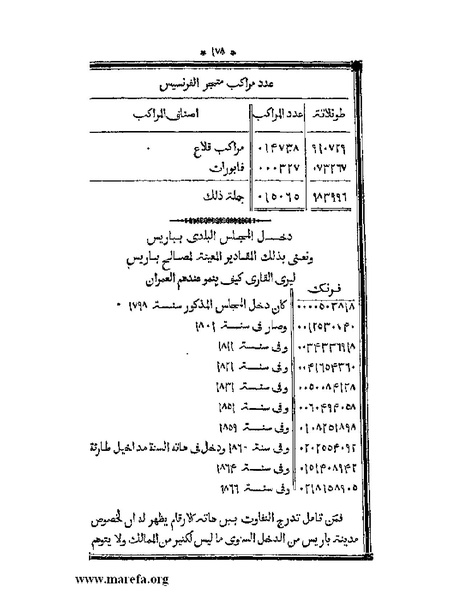 * ١٧٨ *
عدد مراكب متجر الفرنسيس
اصناف المراكب عدد المراكب طونلاتة
مراكب قلاع ٠١٤٧٣٨ ٩١٠٧٢٩
فابورات ٠٠٠٣٢٧ ٠٧٣٢٦٧
جملة ذلك ٠١٥٠٦٥ ٩٨٣٩٩٦
دخل المجلس البلدى بباريس
ونعنى بذلك المقادير المعينة لمصالح باريس
ليرى القارى كيف ينمو عندهم العمران
فرنك
كان دخل المجلس المذكور سنة ١٧٩٨
وصار فى سنة ١٨٠١ ٠٠١٢٥٣٠١٤٠
وفى سنة ١٨١١
وفى سنة ١٨٢١ ٠٠٤١٦٥٤٣٦٠
وفى سنة ١٨٣١
وفى سنة ١٨٥١ ٠٠٦٠٤٩٤٠٥٨
وفى سنة ١٨٥٩ ٠١٠٨٢٥١٨٩٨
وفى سنة ١٨٦٠ ودخل فى هاته السنة مداخيل طارئة ٠٢٠٢٥٥٤٠٩٢
وفى سنة ١٨٦٤ ٠١٥١٤٠٨٩٤٢
وفى سنة ١٨٦٦ ٠٢١٨١٥٨٩٠٥
فمن تامل تدرج التفاوت بين هاته الارقام يظهر له ان لخصوص
مدينة باريس من الدخل السنوى ما ليس لكثير من الممالك ولا يتوهم
www.marefa.org